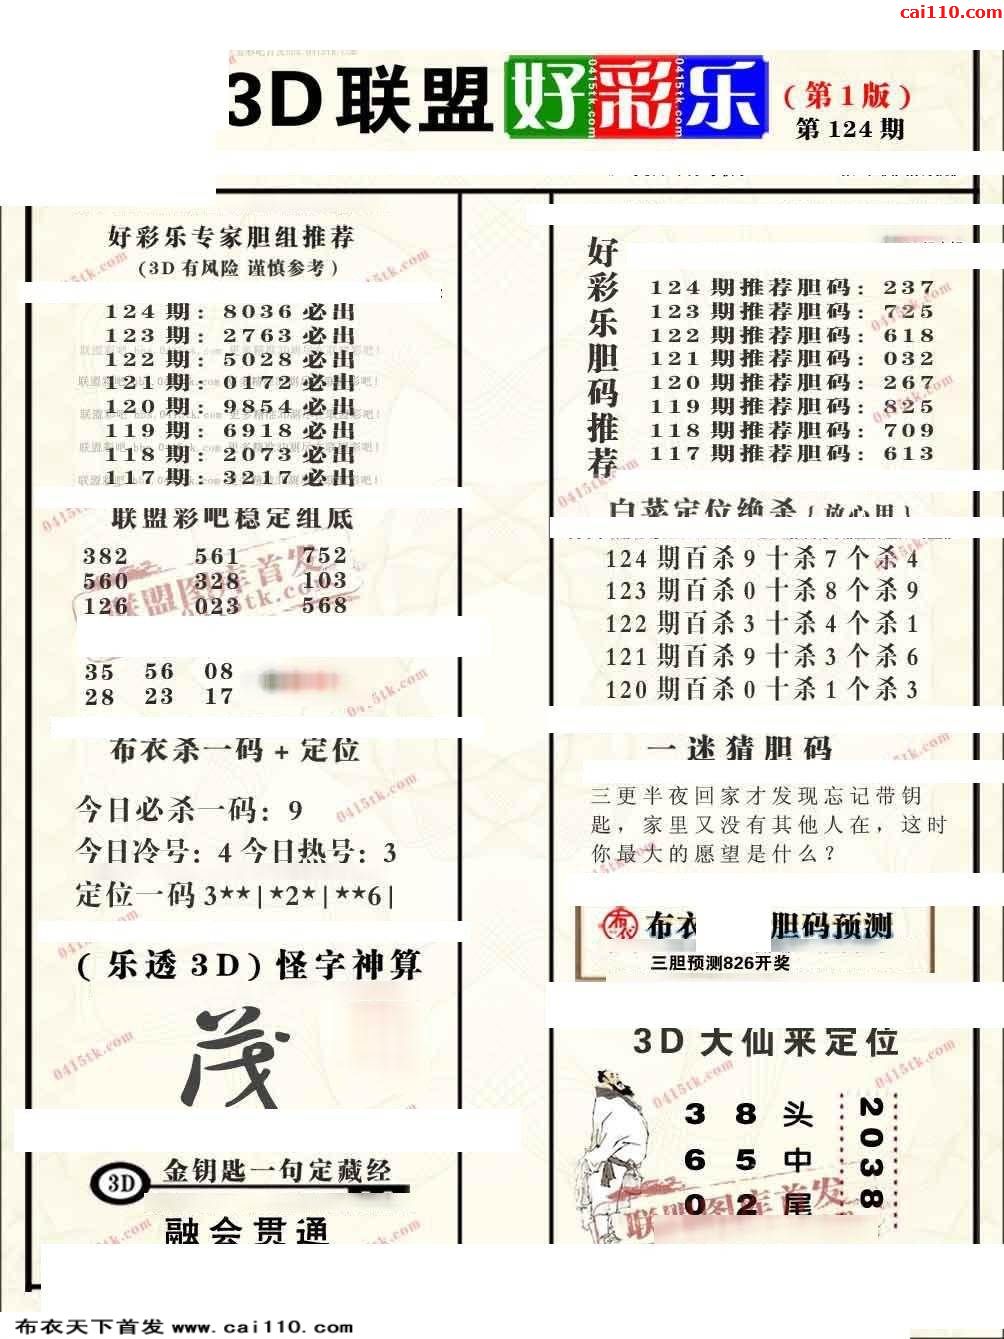 cai110.com
3D联盟好彩乐
(第1版)
第124期
好彩乐专家胆组推荐
(3D有风险 谨慎参考)
124期: 8036必出
123期: 2763必出
122期: 5028必出
121期: 0172必出
120期: 9854必出
119期: 6918必出
118期: 2073必出
117期: 3217必出
联盟彩吧稳定组底
382 561 752
560 328 103
126 023 568
35 56 08
28 23 17
布衣杀一码+定位
今日必杀一码: 9
今日冷号: 4 今日热号: 3
定位一码 3**|*2*|**6|
(乐透3D)怪字神算
茂
3D 金钥匙一句定藏经
融会贯通
好彩乐胆码推荐
124期推荐胆码: 237
123期推荐胆码: 725
122期推荐胆码: 618
121期推荐胆码: 032
120期推荐胆码: 267
119期推荐胆码: 825
118期推荐胆码: 709
117期推荐胆码: 613
白菜定位绝杀{放心用}
124期百杀9十杀7个杀4
123期百杀0十杀8个杀9
122期百杀3十杀4个杀1
121期百杀9十杀3个杀6
120期百杀0十杀1个杀3
一迷猜胆码
三更半夜回家才发现忘记带钥
匙，家里又没有其他人在，这时
你最大的愿望是什么？
布衣 布衣 胆码预测
三胆预测826开奖
3D大仙来定位
3 8 头
6 5 中
0 2 尾
2038
联盟图库首发
0415tk.com
布衣天下首发 www.cai110.com